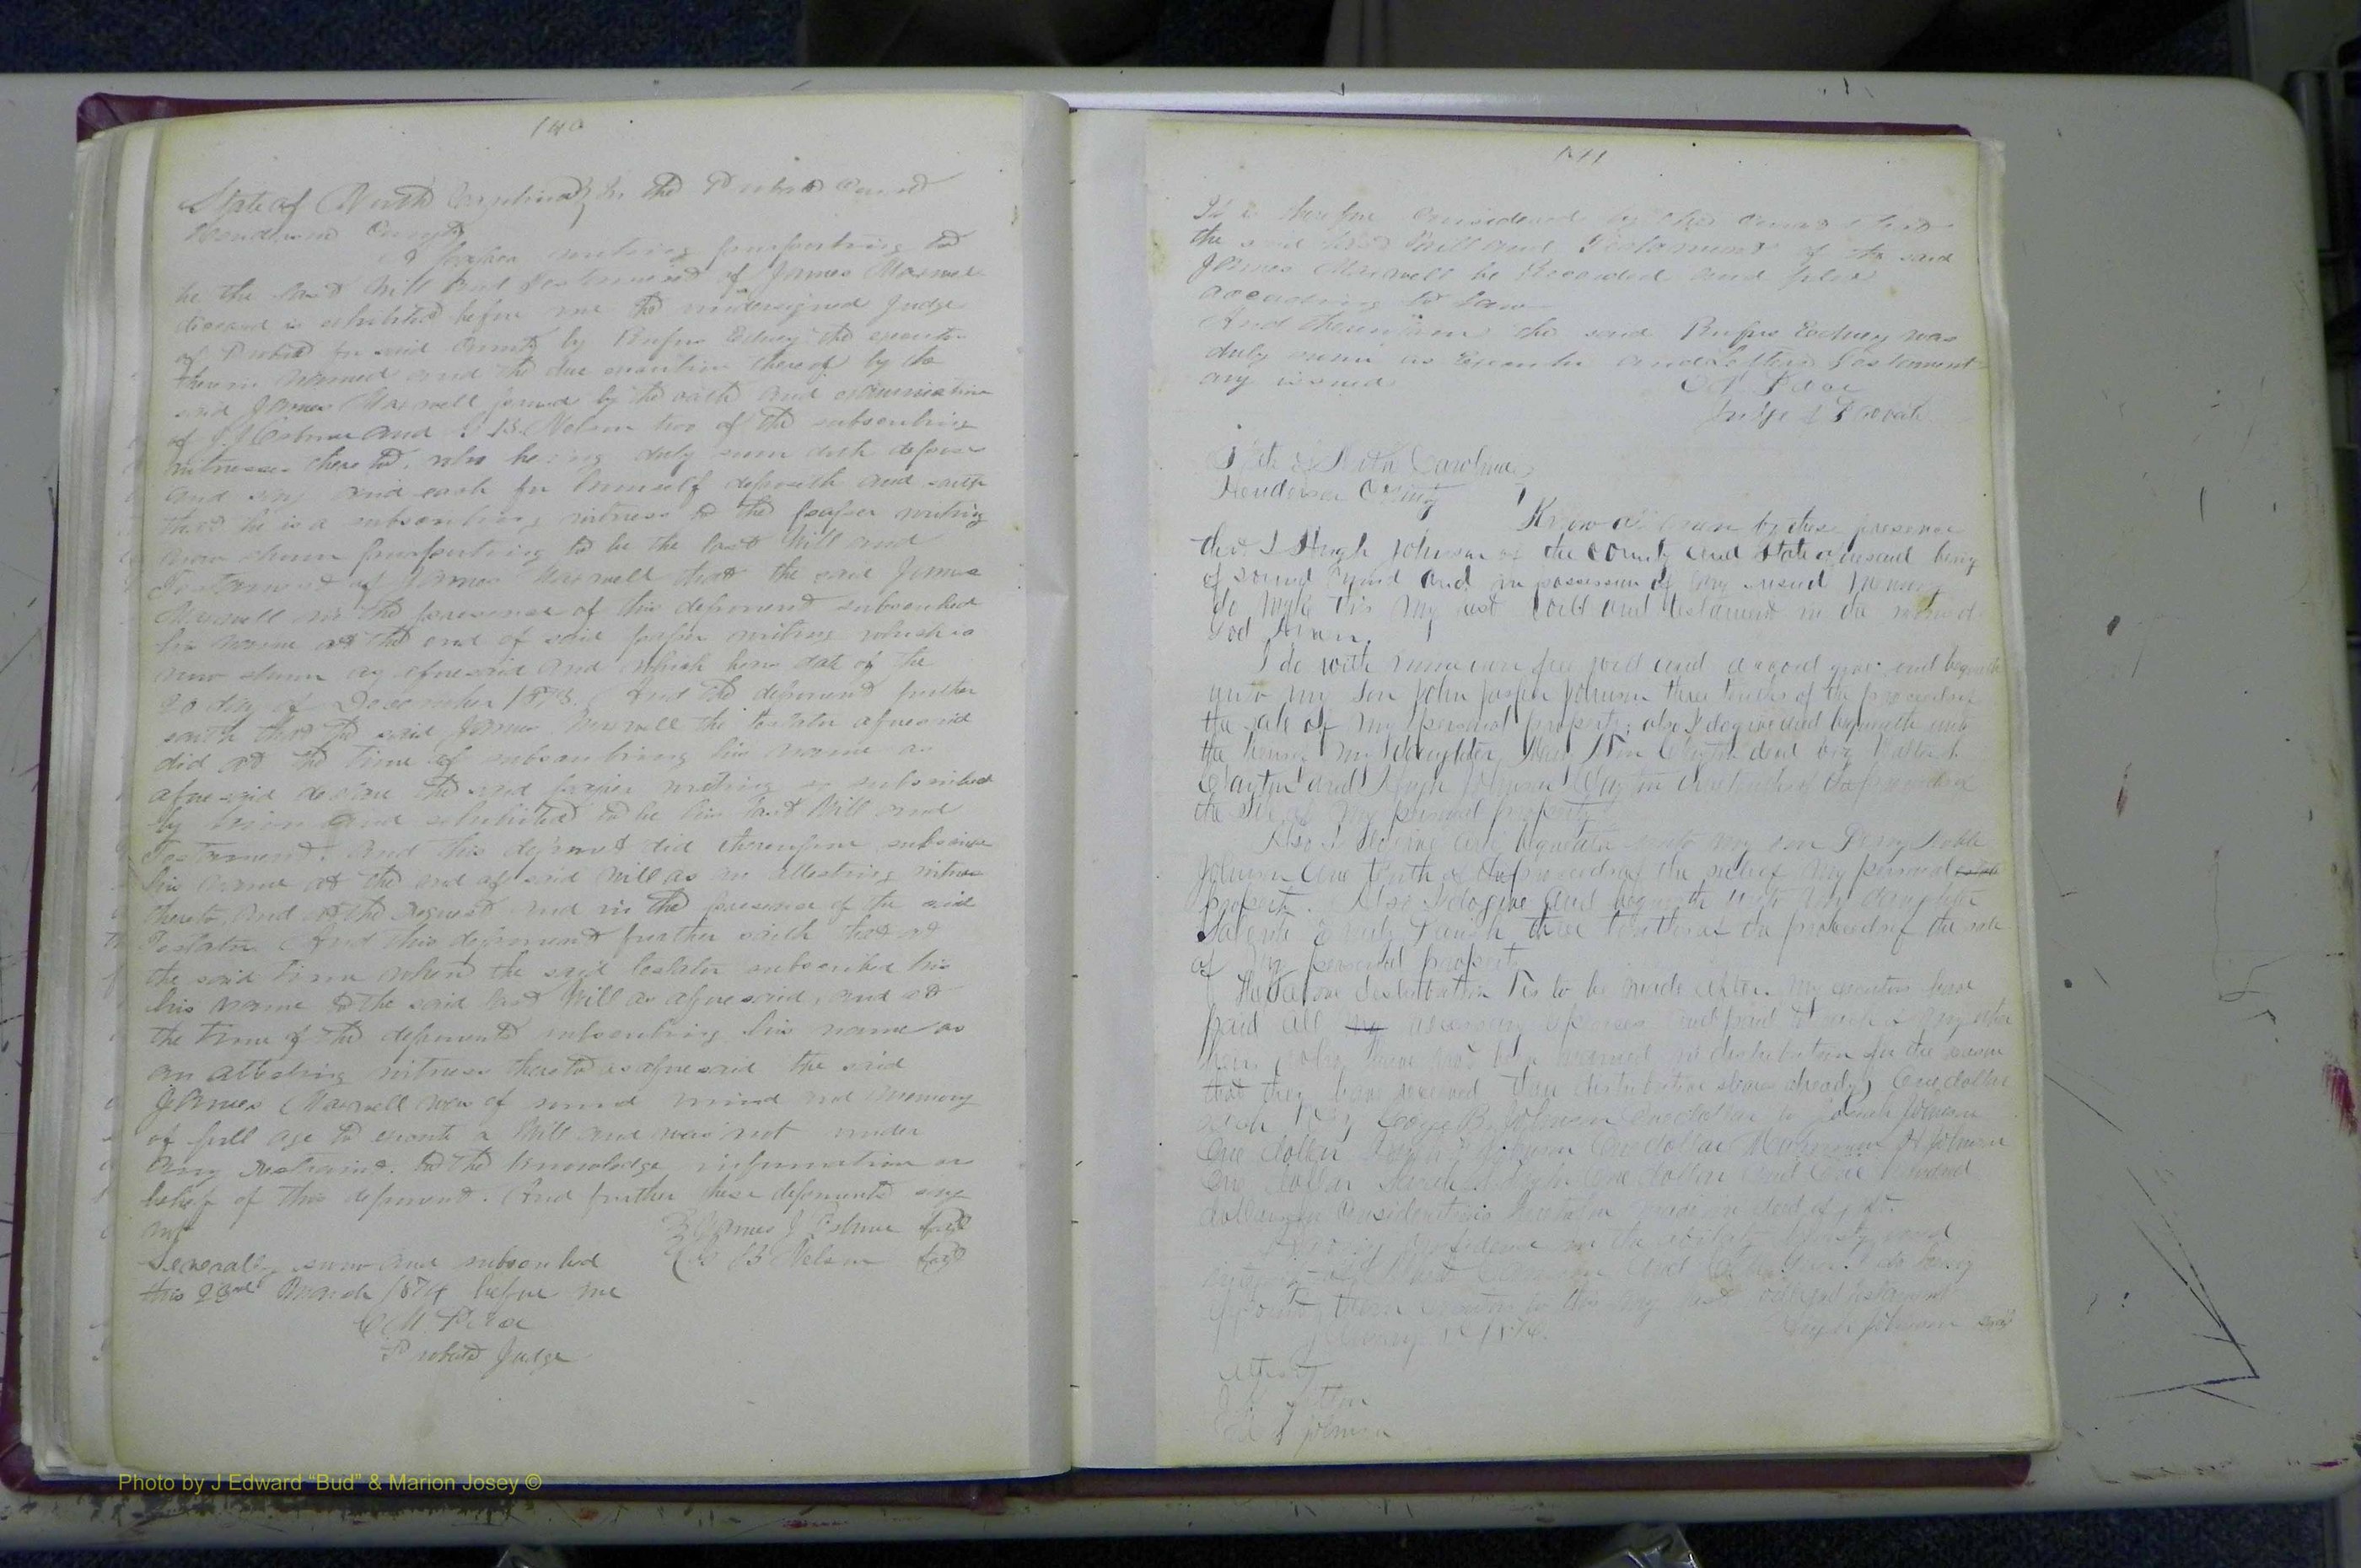 140
State of North Carolina } In the Probate Court
Henderson County
A paper writing purporting to
be the last Will and Testament of James Maxwell
deceased is exhibited before me the undersigned Judge
of Probate for said County by Rufus Edney the executor
therein named and the due execution thereof by the
said James Maxwell proved by the oath and examination
of J. J. Osborne and B Nelson two of the subscribing
witnesses thereto. who being duly sworn doth depose
and say and each for himself deposeth and saith
that he is a subscribing witness to the paper writing
now shown purporting to be the last Will and
Testament of James Maxwell that the said James
Maxwell in the presence of this deponent subscribed
his name at the end of said paper writing which is
now shown as aforesaid and which bears date of the
20 day of December 1873. And the deponent further
saith that the said James Maxwell the testator aforesaid
did at the time of subscribing his name as
aforesaid declare the said paper writing so subscribed
by him and exhibited to be his last Will and
Testament. And this deponent did thereupon subscribe
his name at the end of said Will as an attesting witness
thereto, and at the request and in the presence of the said
Testator. And this deponent further saith that at
the said time when the said testator subscribed his
his name to the said last Will as aforesaid, and at
the time of the deponents subscribing his name as
an attesting witness thereto as aforesaid the said
James Maxwell was of sound mind and memory
of full age to execute a Will and was not under
any restraint. to the knowledge information or
belief of this deponent. And further these deponents say
not } James J Osborne Seal
Severally sworn and subscribed B Nelson Seal
this 23rd March 1874 before me
C M Pace
Probate Judge
141
It is therefore considered by the Court that
the said last Will and Testament of the said
James Maxwell be Recorded and filed
according to Law
And thereupon the said Rufus Edney was
duly sworn as Executor and Letters Testament-
ary issued
C M Pace
Judge of Probate
State of North Carolina }
Henderson County }
Know all men by these presence
that I Hugh Johnson of the County and State aforesaid being
of sound mind and in possession of my usual memory
do make this my last will and testament in the name of
God Amen.
I do with mine own free will and accord give and bequeath
unto my son John Jasper Johnson three tenths of the proceeds of
the sale of my personal property; also I do give and bequeath unto
the heirs of my daughter Mary Ann Clayton dead
Clayton and Hugh Johnson Clayton three tenths of the proceeds of
the sale of my personal property
Also I do give and bequeath unto my son Perry
Johnson one tenth of the proceeds of the sale of my personal
property. Also I do give and bequeath unto my daughter
Emily three tenths of the proceeds of the sale
of my personal property
The above distribution is to be made after my executors have
paid all necessary expenses and paid to each of my other
heirs who have not been named in distribution for the reason
that they have received their distributive shares already, one dollar
each George B. Johnson one dollar to Johnson
one dollar Johnson one dollar H Johnson
one dollar one dollar and one hundred
dollars in consideration made in deed of gift.
confidence in the ability honesty and
integrity of and I do hereby
appoint them executors to this my last will and testament
Hugh Johnson Seal
Attest
Johnson
Photo by J Edward “Bud” & Marion Josey ©